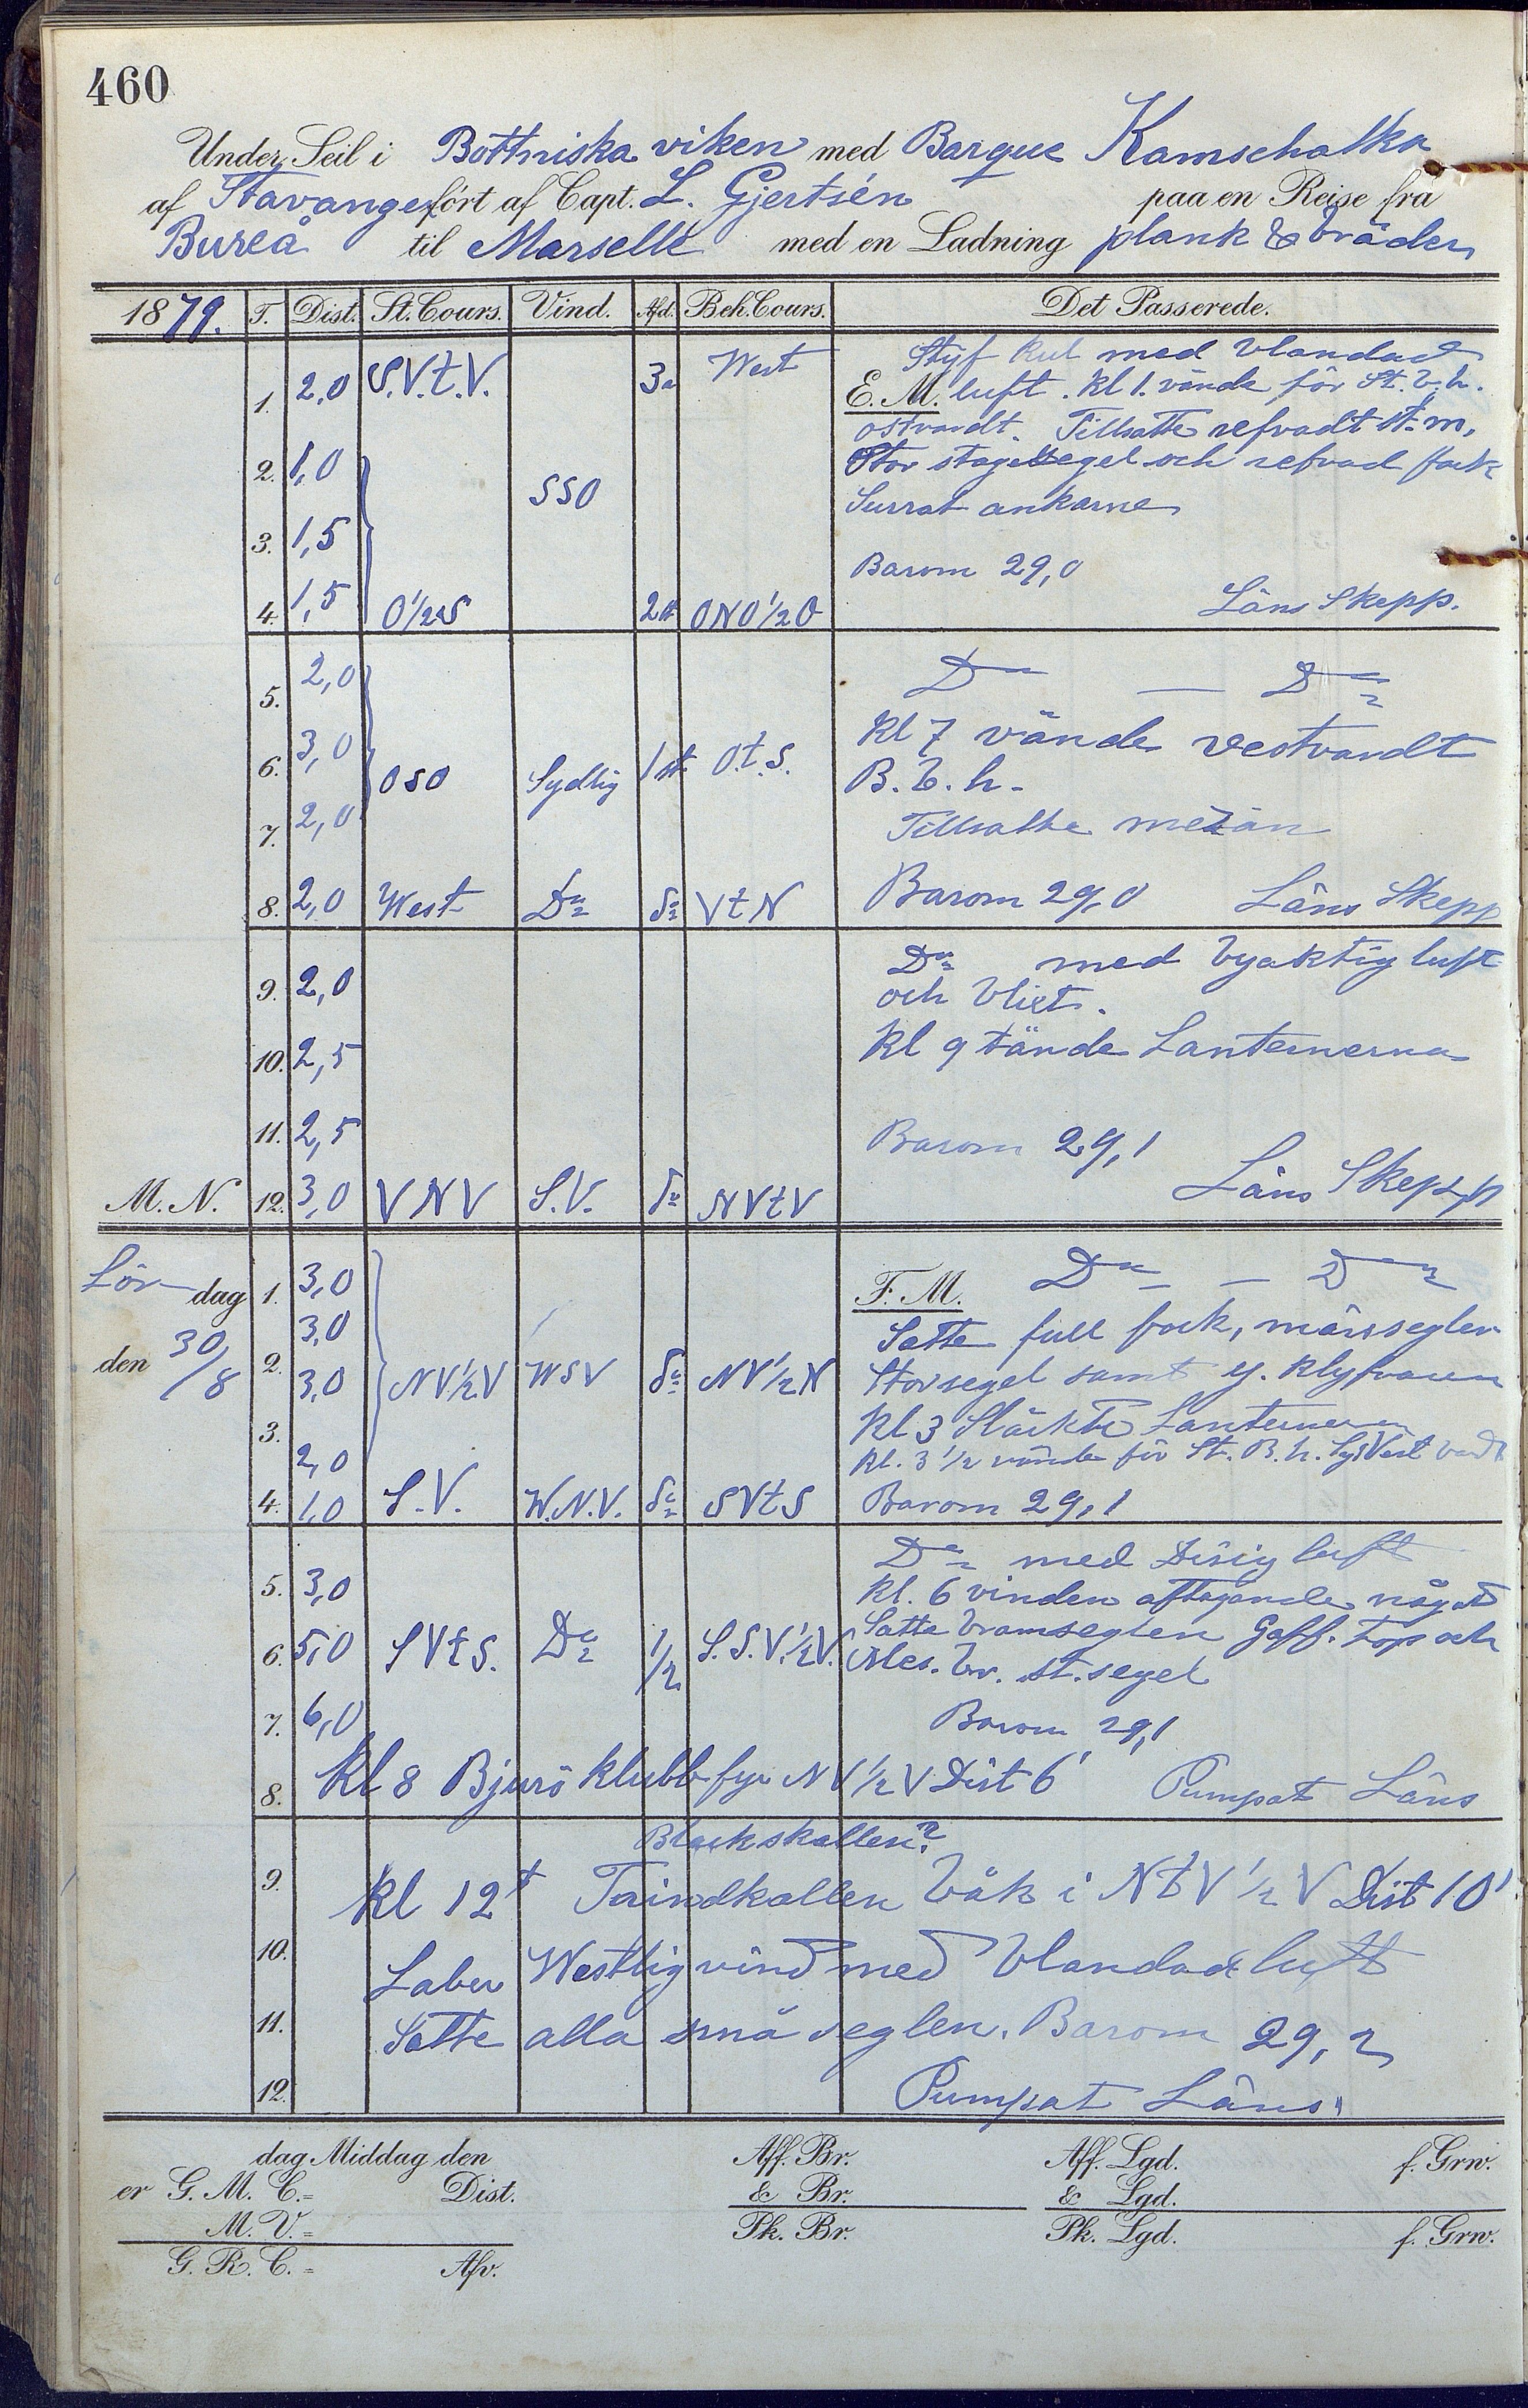 460
Under Seil i Bottniska viken med Barque Kamschatka
af Stavanger ført af Capt. L. Gjertsén paa en Reise fra
Bureå til Marselle med en Ladning plank & bräder
1879. T. Dist. St. Cours. Vind. Afd. Beh. Cours. Det Passerede.
Styf kul med blandad
1. 2,0 S.V.t.V. 3a West E.M. luft. Kl 1. vände för St. b. h.
ostvardt. Tillsatte refvadt st. m,
2. 1,0 Stor stagsegel och refvad fock
SSO Surrat ankarne
3. 1,5
Barom 29,0
4. 1,5 O½S 2a ONO½O Läns Skepp.
5. 2,0 Do — Do
6. 3,0 OSO Sydlig 1 st. O.t.S. Kl 7 vände vestvardt
B. b. h.
7. 2,0 Tillsatte mesan
8. 2,0 West Do do VtN Barom 29,0 Läns Skepp
9. 2,0 Do med byaktig luft
och blixt.
10. 2,5 Kl 9 tände Lanternerna
11. 2,5 Barom 29,1
M.N. 12. 3,0 VNV S.V. do NVtV Läns Skepp
Lördag 1. 3,0 F.M. Do — Do
3,0 Satte full fock, märssegler
den 30/8 2. 3,0 NV½V WSV do NV½N Storsegel samt y. klyfvaren
3. Kl 3 Släckte Lanternerna
2,0 Kl. 3½ vände för St. B. h. Syd Vest vardt
4. 1,0 S.V. W.N.V. do SVtS Barom 29,1
Do med disig luft
5. 3,0 Kl. 6 vinden aftagande något
6. 5,0 SVtS. Do ½ S.S.V.½V. Satte bramseglen Gaff. Top och
Mes. br. st. segel
7. 6,0 Barom 29,1
8. Kl 8 Bjurö klubb fyr NV½V Dist 6' Pumpat Läns
Blackskallen?
9. Kl 12 Båk i NtV½V Dist 10'
10. Laber Westlig vind med blandad luft
11. Satte alla små seglen. Barom 29,2
12. Pumpat Läns.
dag Middag den Aff. Br. Aff. Lgd. f. Grw.
er G. M. C. = Dist. & Br. & Lgd.
M. V. = Pk. Br. Pk. Lgd. f. Grw.
G. R. C. = Afv.